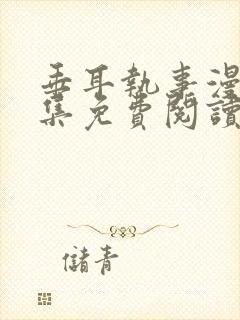 垂耳執事漫
集免費閱讀
儲青